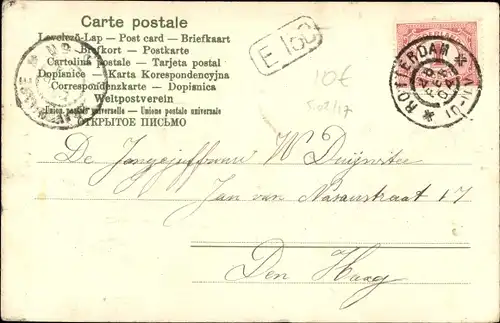 Carte postale
Levelező-Lap — Post card — Briefkaart
Brefkort — Postkarte
Cartolina postale — Tarjeta postal
Dopisnice — Karta Korespondencyjna
Correspondenzkarte — Dopisnica
Weltpostverein
Union postale universelle — Unione postale universale
ОТКРЫТОЕ ПИСЬМО
E 150
ROTTERDAM
10€
De Jongejuffrouw W Duijvetter
Jan van Nassaustraat 17
Den Haag